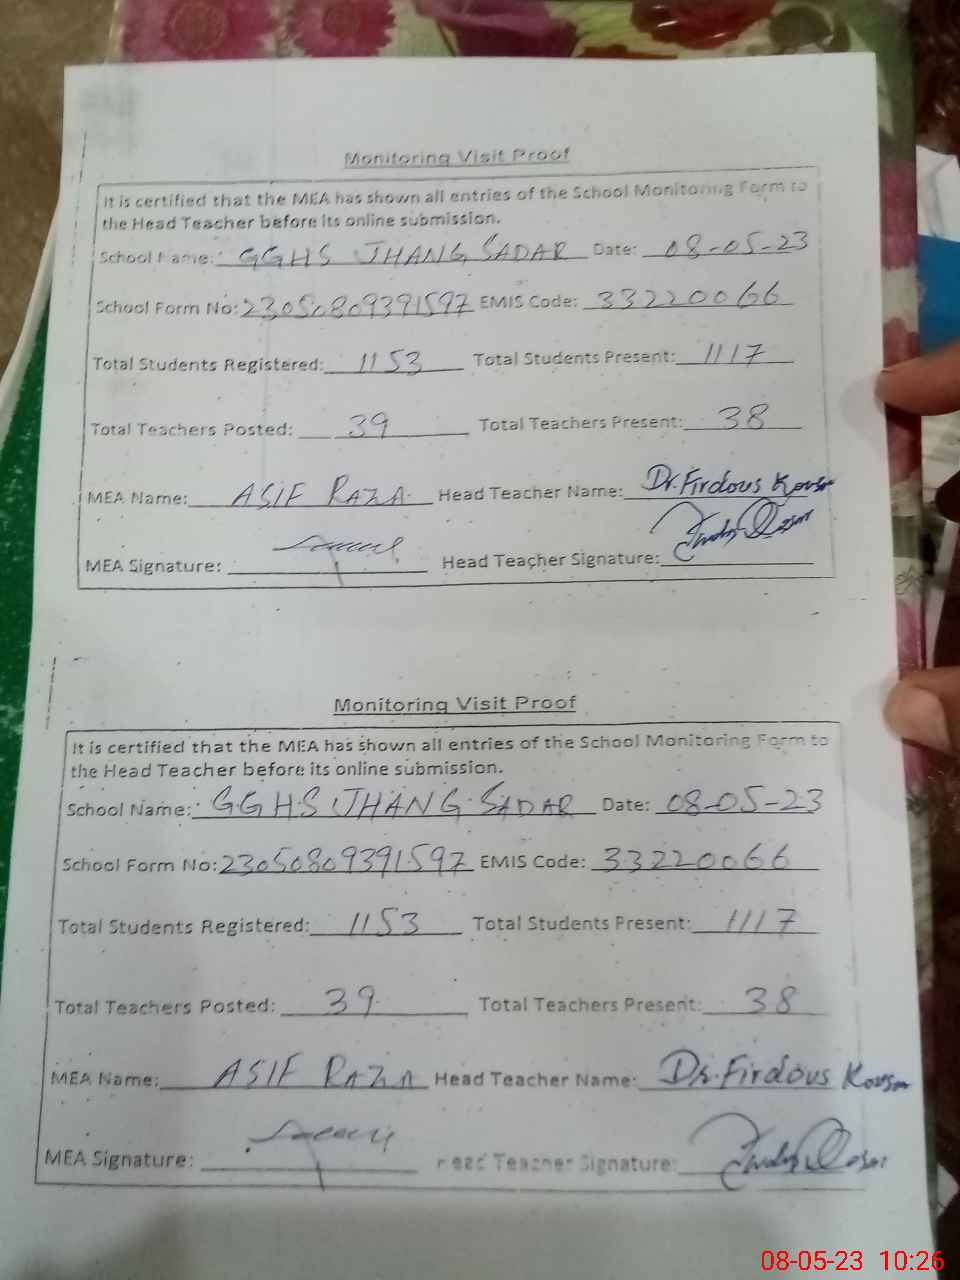 Monitoring Visit Proof
It is certified that the MEA has shown all entries of the School Monitoring Form to
the Head Teacher before its online submission.
School Name: GGHS JHANG SADAR Date: 08-05-23
School Form No: 23050809391597 EMIS Code: 33220066
Total Students Registered: 1153 Total Students Present: 1117
Total Teachers Posted: 39 Total Teachers Present: 38
MEA Name: ASIF RAZA Head Teacher Name: Dr. Firdous Kousar
MEA Signature: Head Teacher Signature:
Monitoring Visit Proof
It is certified that the MEA has shown all entries of the School Monitoring Form to
the Head Teacher before its online submission.
School Name: GGHS JHANG SADAR Date: 08-05-23
School Form No: 23050809391597 EMIS Code: 33220066
Total Students Registered: 1153 Total Students Present: 1117
Total Teachers Posted: 39 Total Teachers Present: 38
MEA Name: ASIF RAZA Head Teacher Name: Dr. Firdous Kousar
MEA Signature: Head Teacher Signature:
08-05-23 10:26